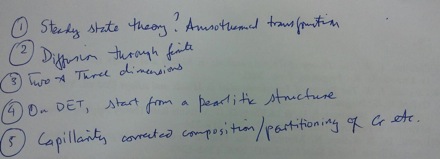 ① Steady state theory? Anisothermal transformation
② Diffusion through finite
③ Two & Three dimensions
④ On DET, start from a pearlitic structure
⑤ Capillarity corrected composition/partitioning of Cr etc.